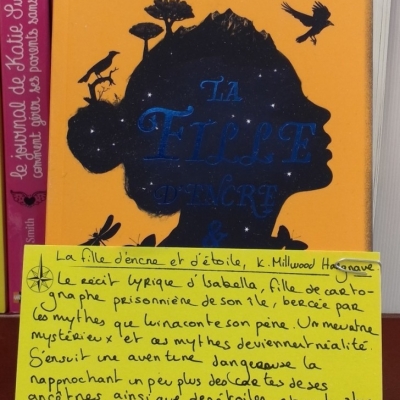 le journal de Katie
comment gérer ses parents sans
Smith
LA
FILLE
D'ENCRE
&
La fille d'encre et d'étoile, K. Millwood Hargrave
Le récit lyrique d'Isabella, fille de carto-
graphe prisonnière de son île, bercée par
les mythes que lui raconte son père. Un meurtre
mystérieux et ces mythes deviennent réalité.
S'ensuit une aventure dangereuse la
rapprochant un peu plus des cartes de ses
ancêtres ainsi que des étoiles